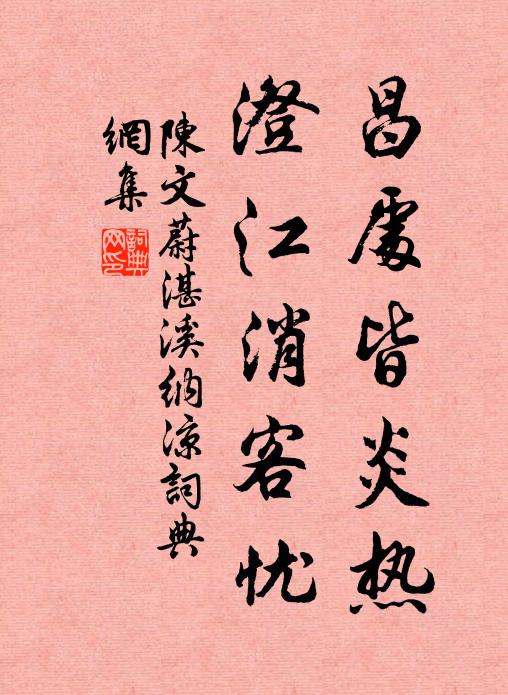 昌處皆炎热
澄江消客忧
陳文蔚湛溪納凉詞典
網集
詞典網印